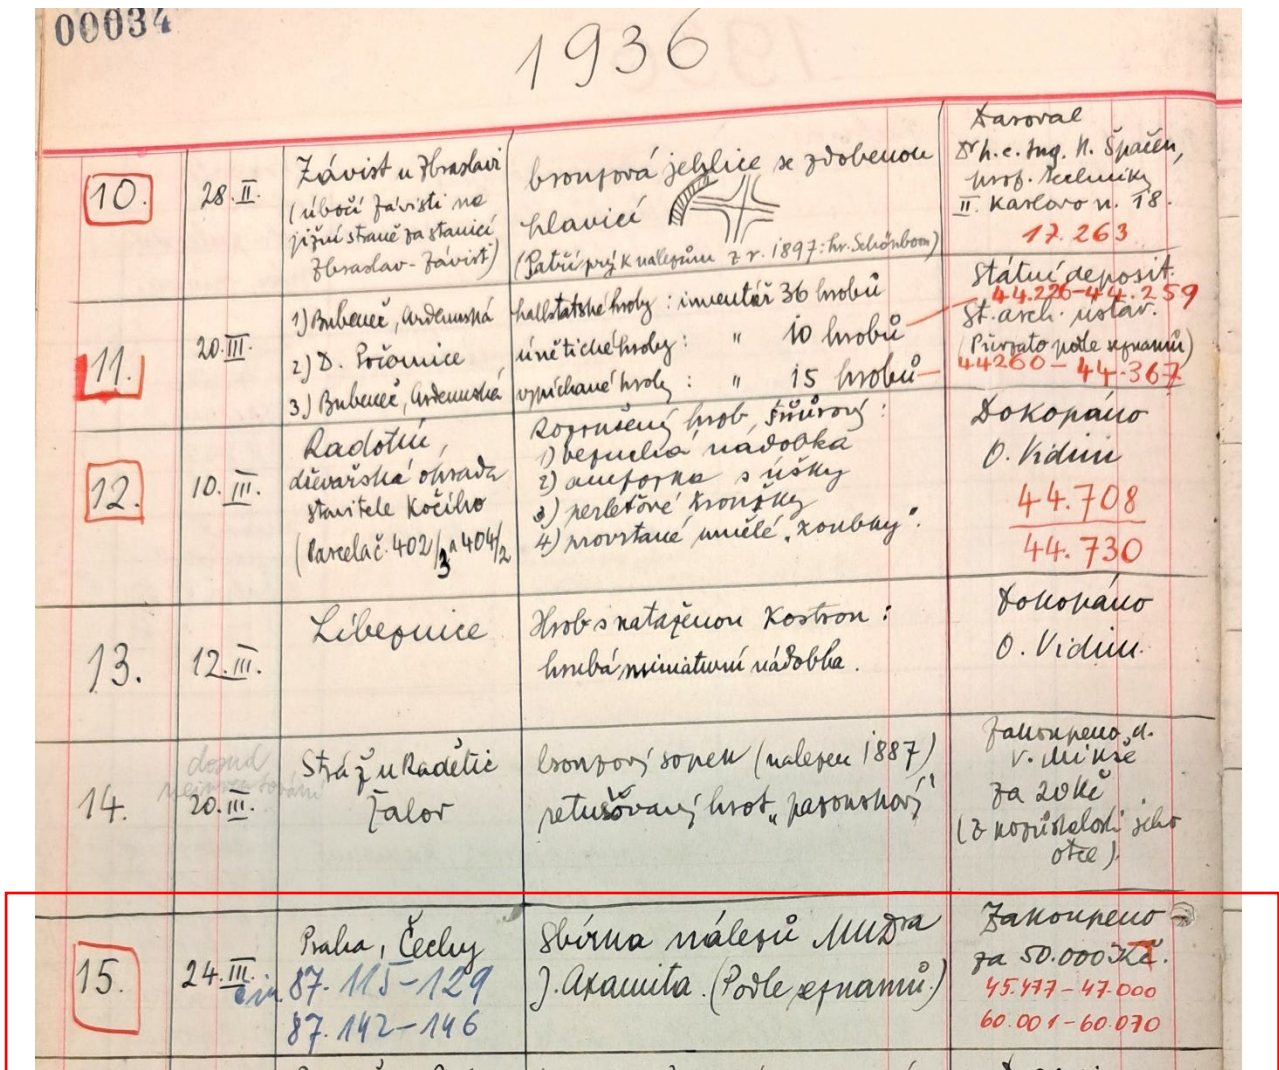 00034
1936
10.
28.II.
Závist u Zbraslavi
(úbočí Závisti na
jižní straně za stanicí
Zbraslav-Závist)
bronzová jehlice se zdobenou
hlavicí
(Patří prý k nálezům z r. 1897: hr. Schönborn)
Daroval
Dr h.c. Ing. H. Špaček,
prof. techniky
II. Karlovo n. 18.
17.263
11.
20.III.
1) Bubeneč, Ardenuská
2) D. Počernice
3) Bubeneč, Ardenuská
hallstatské hroby: inventář 36 hrobů
únětické hroby: " 10 hrobů
vypíchané hroby: " 15 hrobů
Státní deposit.
44.226-44.259
St. arch. ústav.
(Převzato podle seznamů)
44260-44.367
12.
10.III.
Radotín,
dřevařská ohrada
stavitele Kočího
(Parcela č. 402/3 a 404/2
Rozrušený hrob, šňůrový:
1) bezuchá nádobka
2) amforka s úšky
3) perleťové kroužky
4) provrtané umělé „zoubky".
Dokopáno
O. Vidim
44.708
44.730
13.
12.III.
Libeznice
Hrob s nataženou kostrou:
hrubá miniaturní nádobka.
Dokopáno
O. Vidim.
14.
dosud
neinventování
20.III.
Stráž u Radětic
Žalov
bronzový sopek (nalezen 1887)
retušovaný hrot „pazourkový"
Zakoupeno od
V. Mikše
za 20 Kč
(z pozůstalosti jeho
otce)
15.
24.III.
Praha, Čechy
87.115-129
87.142-146
Sbírka nálezů MUDra
J. Axamita. (Podle seznamů.)
Zakoupeno
za 50.000 Kč.
45.477-47.000
60.001-60.070